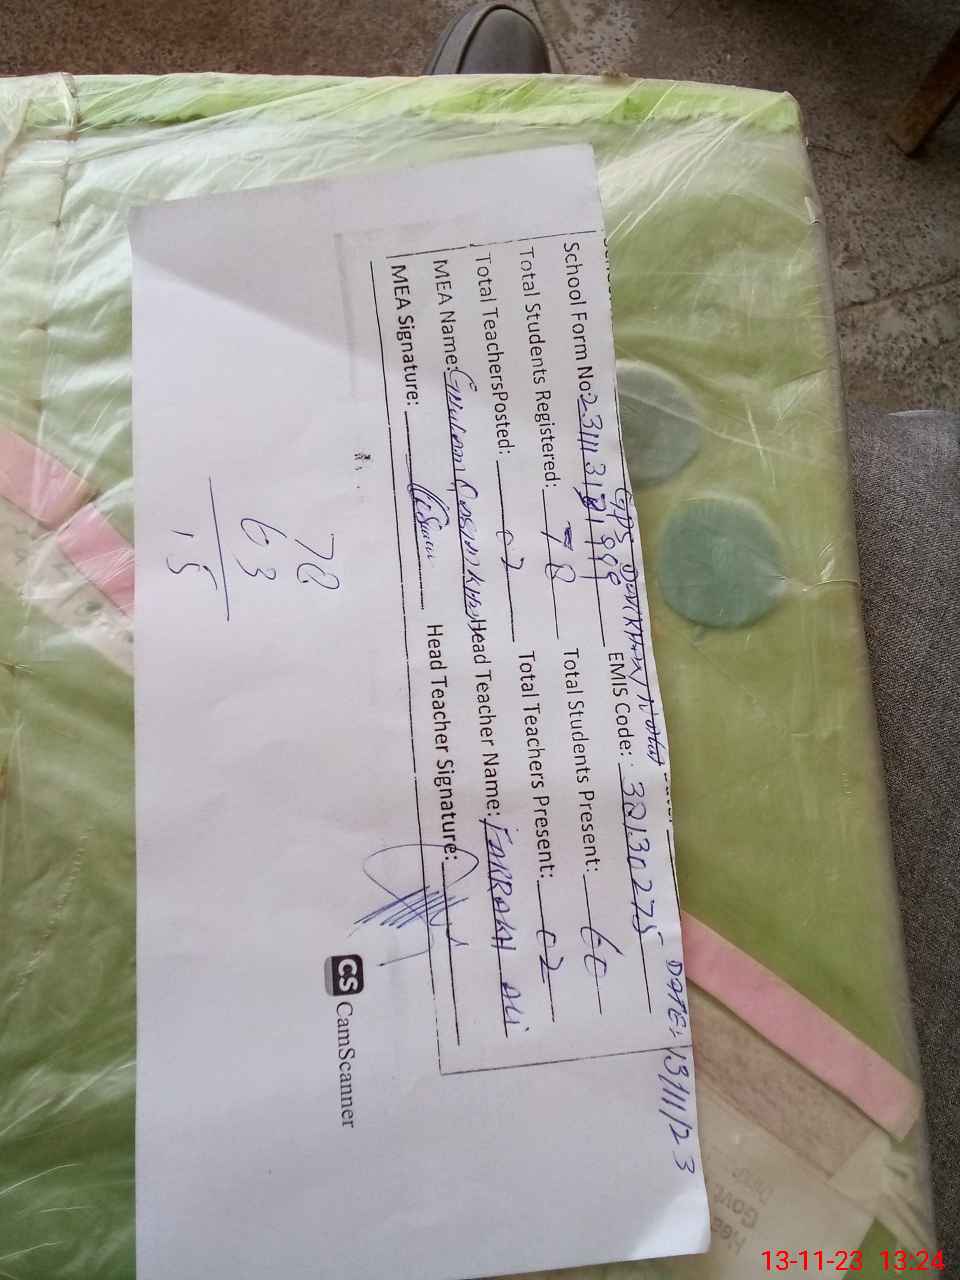 GPS DATE: 13/11/23
School Form No: EMIS Code: 32130275
Total Students Registered: 78 Total Students Present: 60
Total TeachersPosted: 02 Total Teachers Present: 02
MEA Name: Head Teacher Name: FARRAKH ALI
MEA Signature: Head Teacher Signature:
CS CamScanner
78
63
15
Govt
13-11-23 13:24